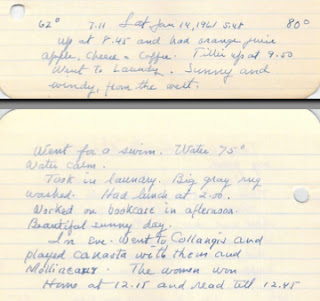 62° 7.11 Sat Jan 14, 1961 5.48 80°
up at 8.45 and had orange juice
apple, cheese & coffee. Tillie up at 9.50
Went to Laundry. Sunny and
windy, from the west.
Went for a swim. Water 75°
Water calm.
Took in laundry. Big gray rug
washed. Had lunch at 2.00.
Worked on bookcase in afternoon.
Beautiful sunny day.
In Eve. went to Collangis and
played canasta with them and
The women won
Home at 12.15 and read till 12.45